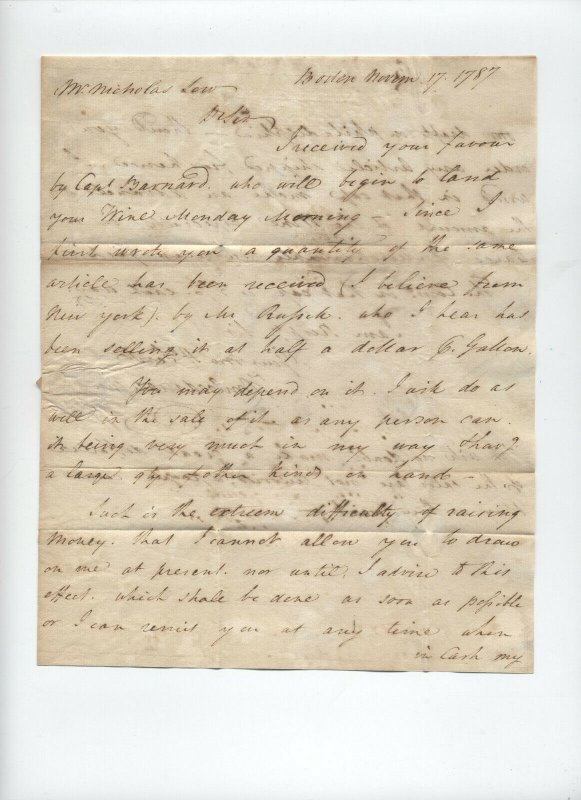 Boston Novem 17. 1787
Mr. Nicholas Low
Dr Sir
I received your favour
by Capt Barnard. who will begin to land
your Wine Monday Morning - Since I
first wrote you a quantity of the same
article has been received (I believe from
New york). by Mr. who I hear has
been selling it at half a dollar Gallon.
You may depend on it. I will do as
well in the sale of it as any person can
it being very much in my way &
a large qty of other kinds on hand -
Such is the extreem difficulty of raising
Money. that I cannot allow you to draw
on me at present. nor until I advise to this
effect. which shall be done as soon as possible
or I can remit you at any time when
in Cash my